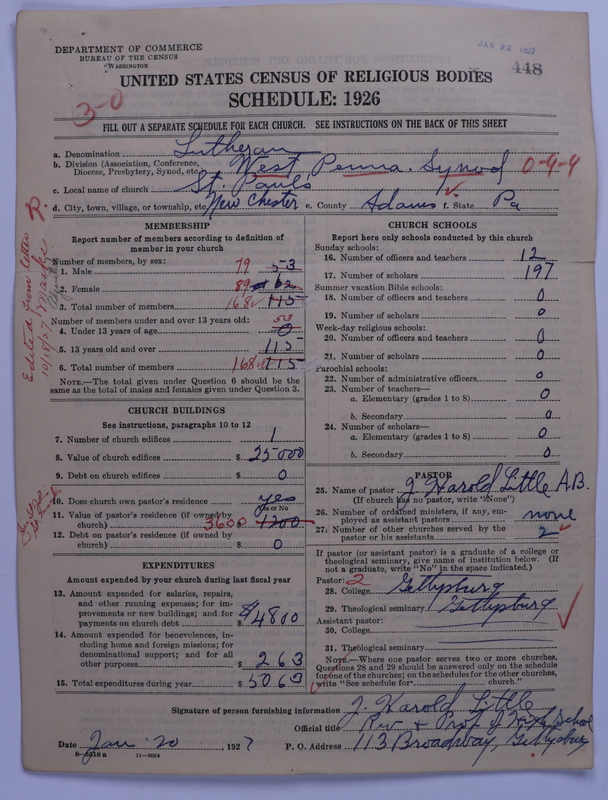 DEPARTMENT OF COMMERCE
BUREAU OF THE CENSUS
WASHINGTON
JAN 22 1927
448
UNITED STATES CENSUS OF RELIGIOUS BODIES
SCHEDULE: 1926
3-0
FILL OUT A SEPARATE SCHEDULE FOR EACH CHURCH. SEE INSTRUCTIONS ON THE BACK OF THIS SHEET
a. Denomination Lutheran
b. Division (Association, Conference, Diocese, Presbytery, Synod, etc.) West Penna. Synod 0-4-9
c. Local name of church St. Pauls
d. City, town, village, or township, etc. New Chester e. County Adams f. State Pa
MEMBERSHIP
Report number of members according to definition of member in your church
Number of members, by sex:
1. Male 79 53
2. Female 89 62
3. Total number of members 168 115
Number of members under and over 13 years old:
4. Under 13 years of age 53 0
5. 13 years old and over 115
6. Total number of members 168 115
NOTE.—The total given under Question 6 should be the same as the total of males and females given under Question 3.
Edited from letter
10/18/27
R.
CHURCH BUILDINGS
See instructions, paragraphs 10 to 12
7. Number of church edifices 1
8. Value of church edifices $ 25000
9. Debt on church edifices $ 0
10. Does church own pastor's residence yes
Yes or No
11. Value of pastor's residence (if owned by church) 3600 1200
12. Debt on pastor's residence (if owned by church) $ 0
EXPENDITURES
Amount expended by your church during last fiscal year
13. Amount expended for salaries, repairs, and other running expenses; for improvements or new buildings; and for payments on church debt $ 4800
14. Amount expended for benevolences, including home and foreign missions; for denominational support; and for all other purposes $ 263
15. Total expenditures during year $ 5063
CHURCH SCHOOLS
Report here only schools conducted by this church
Sunday schools:
16. Number of officers and teachers 12
17. Number of scholars 197
Summer vacation Bible schools:
18. Number of officers and teachers 0
19. Number of scholars 0
Week-day religious schools:
20. Number of officers and teachers 0
21. Number of scholars 0
Parochial schools:
22. Number of administrative officers 0
23. Number of teachers—
a. Elementary (grades 1 to 8) 0
b. Secondary 0
24. Number of scholars—
a. Elementary (grades 1 to 8) 0
b. Secondary 0
PASTOR
25. Name of pastor J. Harold Little A.B.
(If church has no pastor, write "None")
26. Number of ordained ministers, if any, employed as assistant pastors none
27. Number of other churches served by the pastor or his assistants 2
If pastor (or assistant pastor) is a graduate of a college or theological seminary, give name of institution below. (If not a graduate, write "No" in the space indicated.)
Pastor: 2
28. College Gettysburg
29. Theological seminary Gettysburg
Assistant pastor:
30. College
31. Theological seminary
NOTE.—Where one pastor serves two or more churches, Questions 28 and 29 should be answered only on the schedule for one of the churches; on the schedules for the other churches, write "See schedule for church."
Signature of person furnishing information J. Harold Little
Official title Rev. + Prof. of High School
Date Jan 20 , 1927 P. O. Address 113 Broadway, Gettysburg
8—5518 a 11—9064